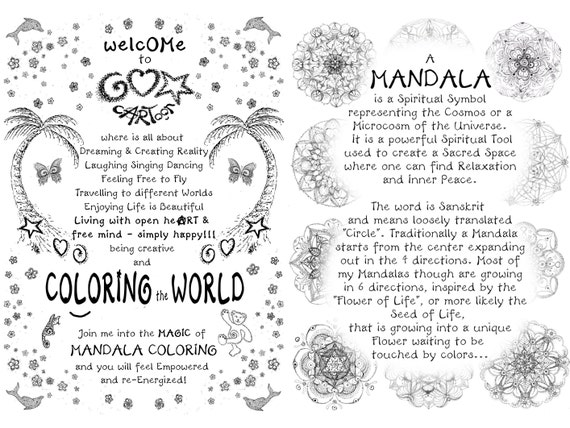 welcOMe
to
GOA
CARTOon
where is all about
Dreaming & Creating Reality
Laughing Singing Dancing
Feeling Free to Fly
Travelling to different Worlds
Enjoying Life is Beautiful
Living with open heART &
free mind - simply happy!!!
being creative
and
COLORING the WORLD
Join me into the MAGIC of
MANDALA COLORING
and you will feel Empowered
and re-Energized!
A
MANDALA
is a Spiritual Symbol
representing the Cosmos or a
Microcosm of the Universe.
It is a powerful Spiritual Tool
used to create a Sacred Space
where one can find Relaxation
and Inner Peace.
The word is Sanskrit
and means loosely translated
"Circle". Traditionally a Mandala
starts from the center expanding
out in the 4 directions. Most of
my Mandalas though are growing
in 6 directions, inspired by the
"Flower of Life", or more likely the
Seed of Life,
that is growing into a unique
Flower waiting to be
touched by colors...